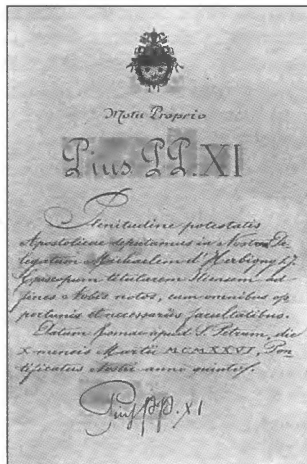 Motu Proprio
Pius PP. XI
Plenitudine potestatis
Apostolicae deputamus in Nostrum De
legatum Michaelem d'Herbigny S.J.
Episcopum titularem Iliensem ad
fines Nobis notos, cum omnibus op
portunis et necessariis facultatibus.
Datum Romae apud S. Petrum, die
X mensis Martii MCMXXVI, Pon
tificatus Nostri anno quinto.
Pius PP. XI